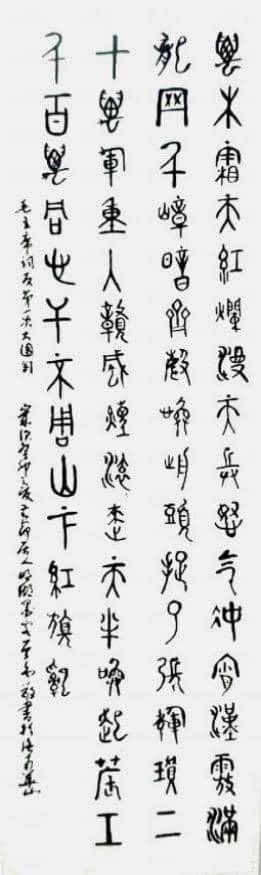 萬木霜天紅爛漫天兵怒氣沖霄漢霧滿
龍岡千嶂暗齊聲喚前頭捉了張輝瓚二
十萬軍重入贛風煙滾來天半喚起農工
千百萬同心干不周山下紅旗亂
毛主席詞反第一次大圍剿
歲次癸卯之夏